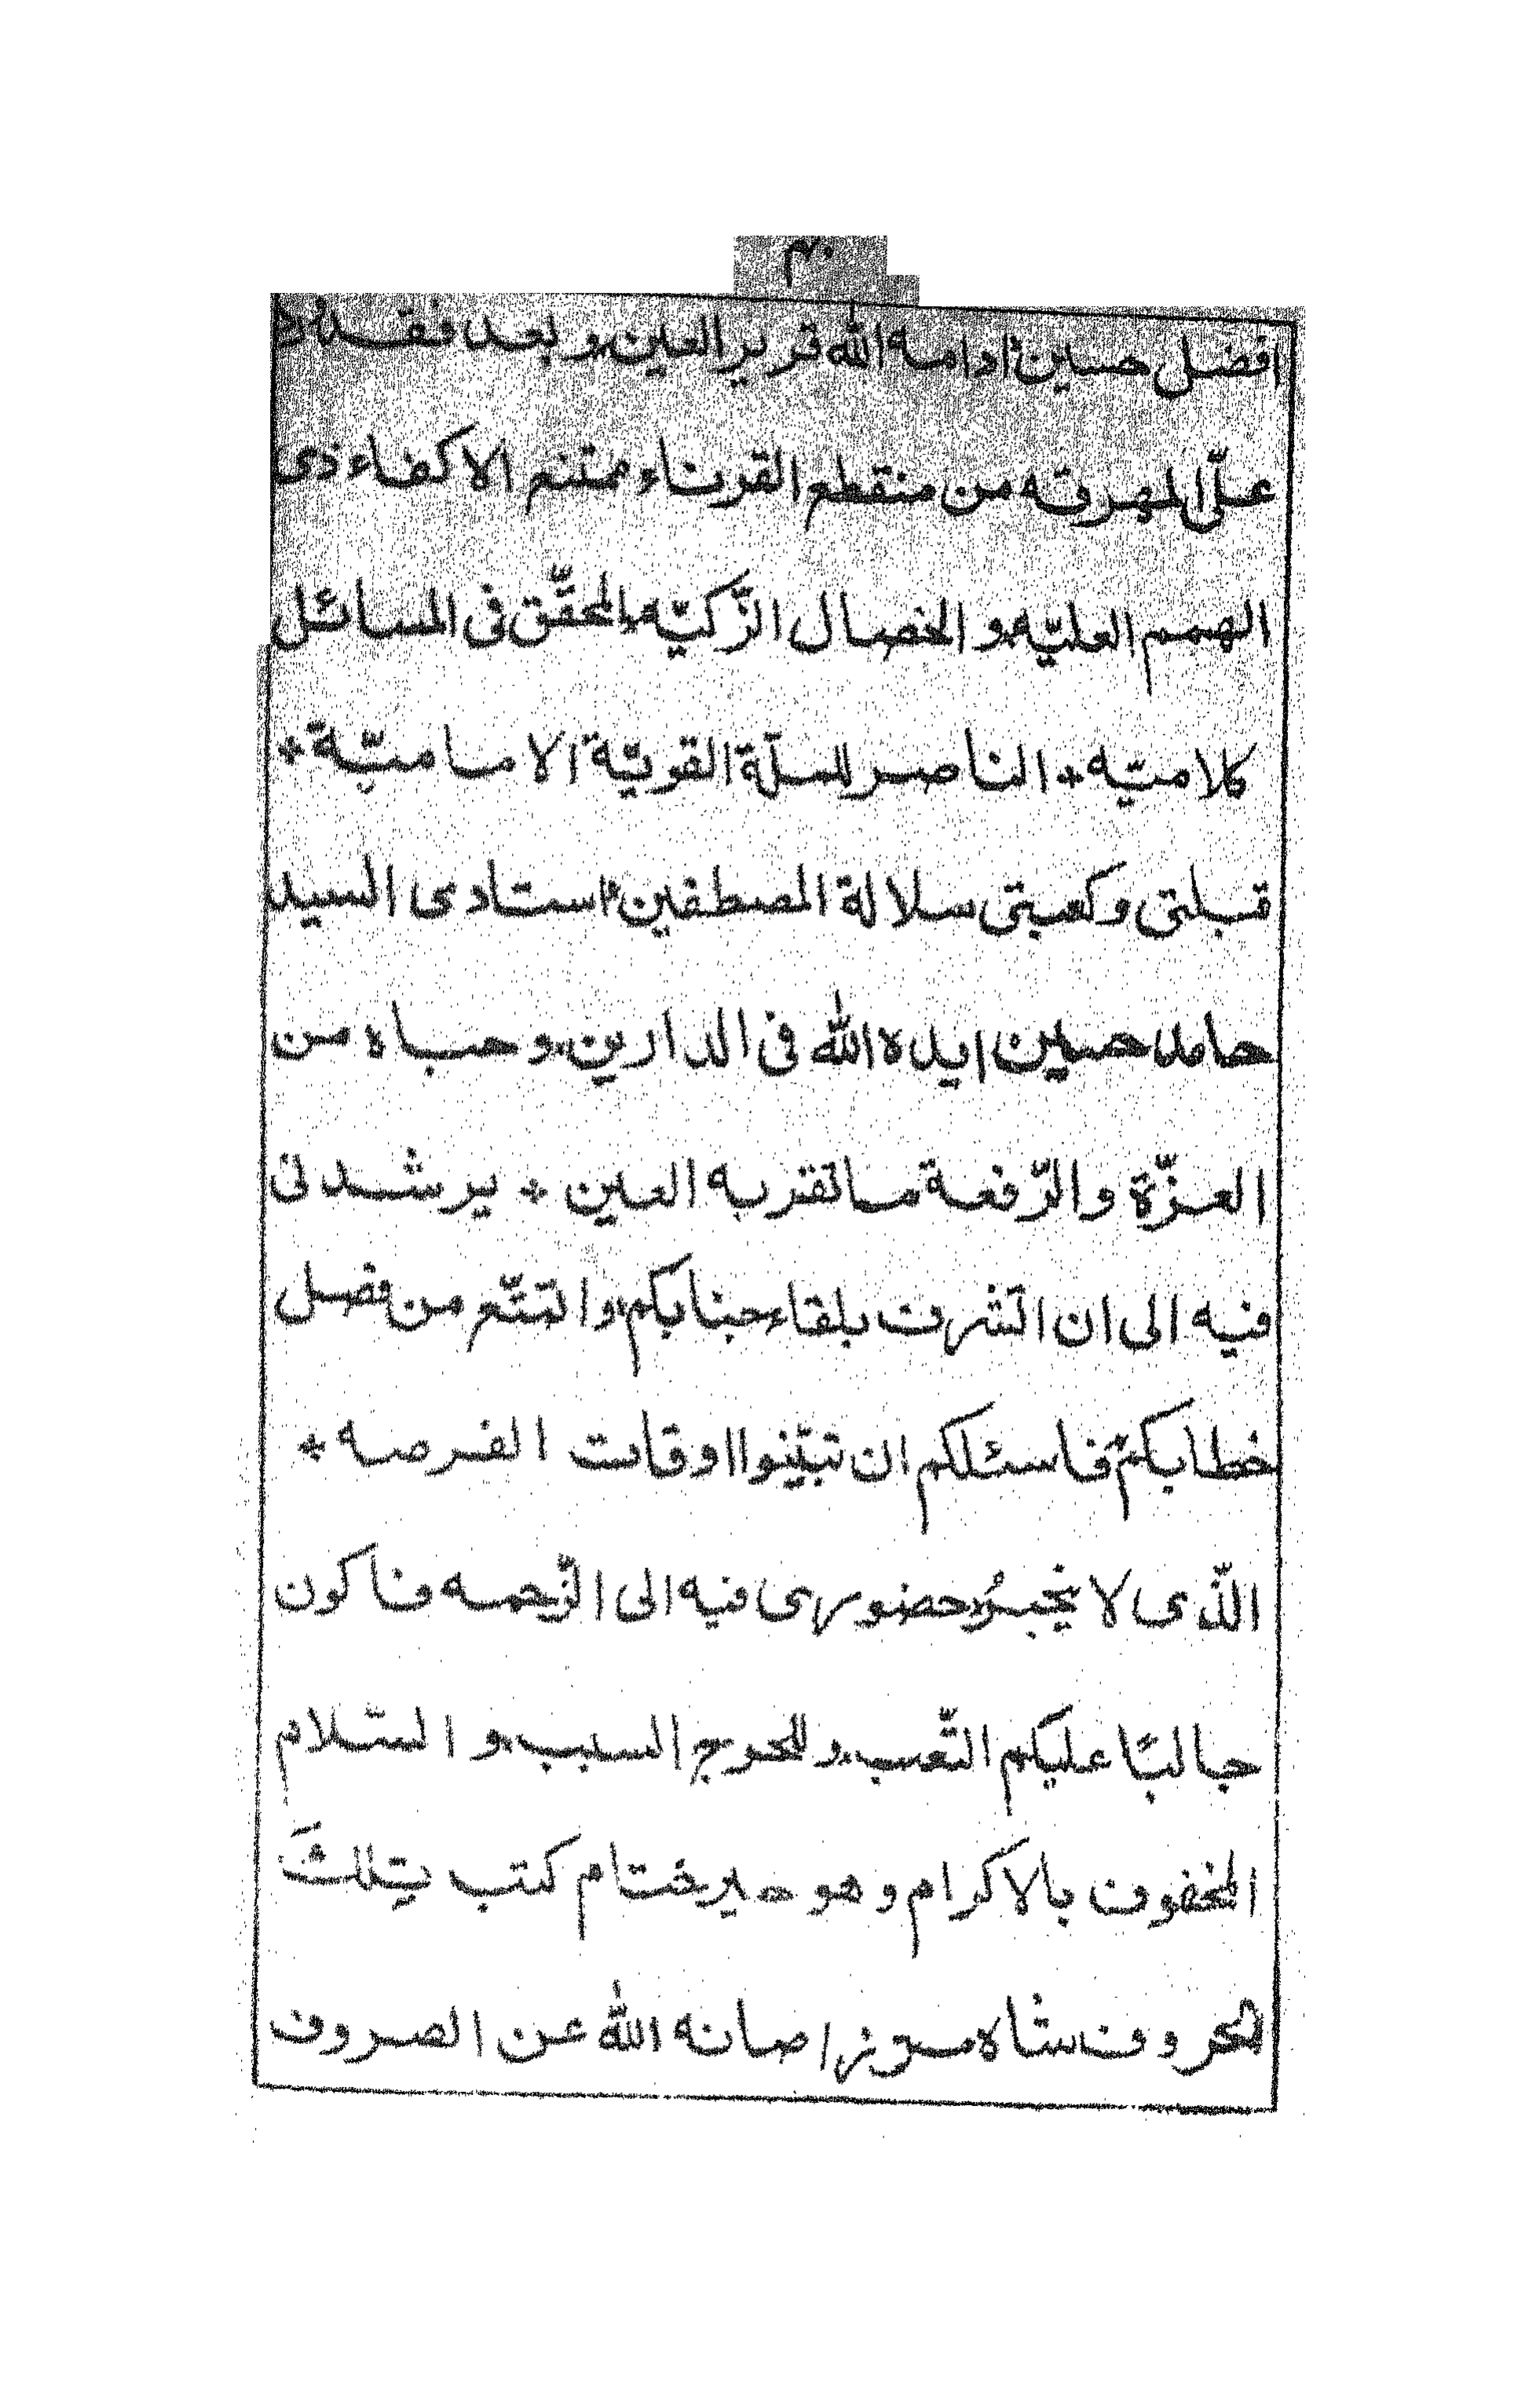 افضل حسين، ادامه الله قرير العين، و بعد فقد ورد
علىّ المهرقه من منقطع القرناء ممتنع الاكفاء ذى
الهمم العليّه، و الخصال الزّكيّه، المحقّق فى المسائل
كلاميّه * الناصر للملّة القويّة الا ماميّة *
قبلتى و كعبتى سلالة المصطفين، استادى السيد
حامد حسين ايده الله فى الدارين، و حباه من
العزّة والرّفعة ما تقربه العين * يرشدنى
فيه الى ان اتشرف بلقاء جنابكم، و اتمتّع من فصل
خطابكم، فاسئلكم ان تبيّنوا اوقات الفرصه *
الّذى لا يجبرُ حضورى فيه الى الزّحمه فاكون
جالبًا عليكم التّعب، و للحوج السبب، و السّلام
المخفوف بالاكرام و هو خير ختام كتب بتلك
الحروف شاه ميرزا صانه الله عن الصروف